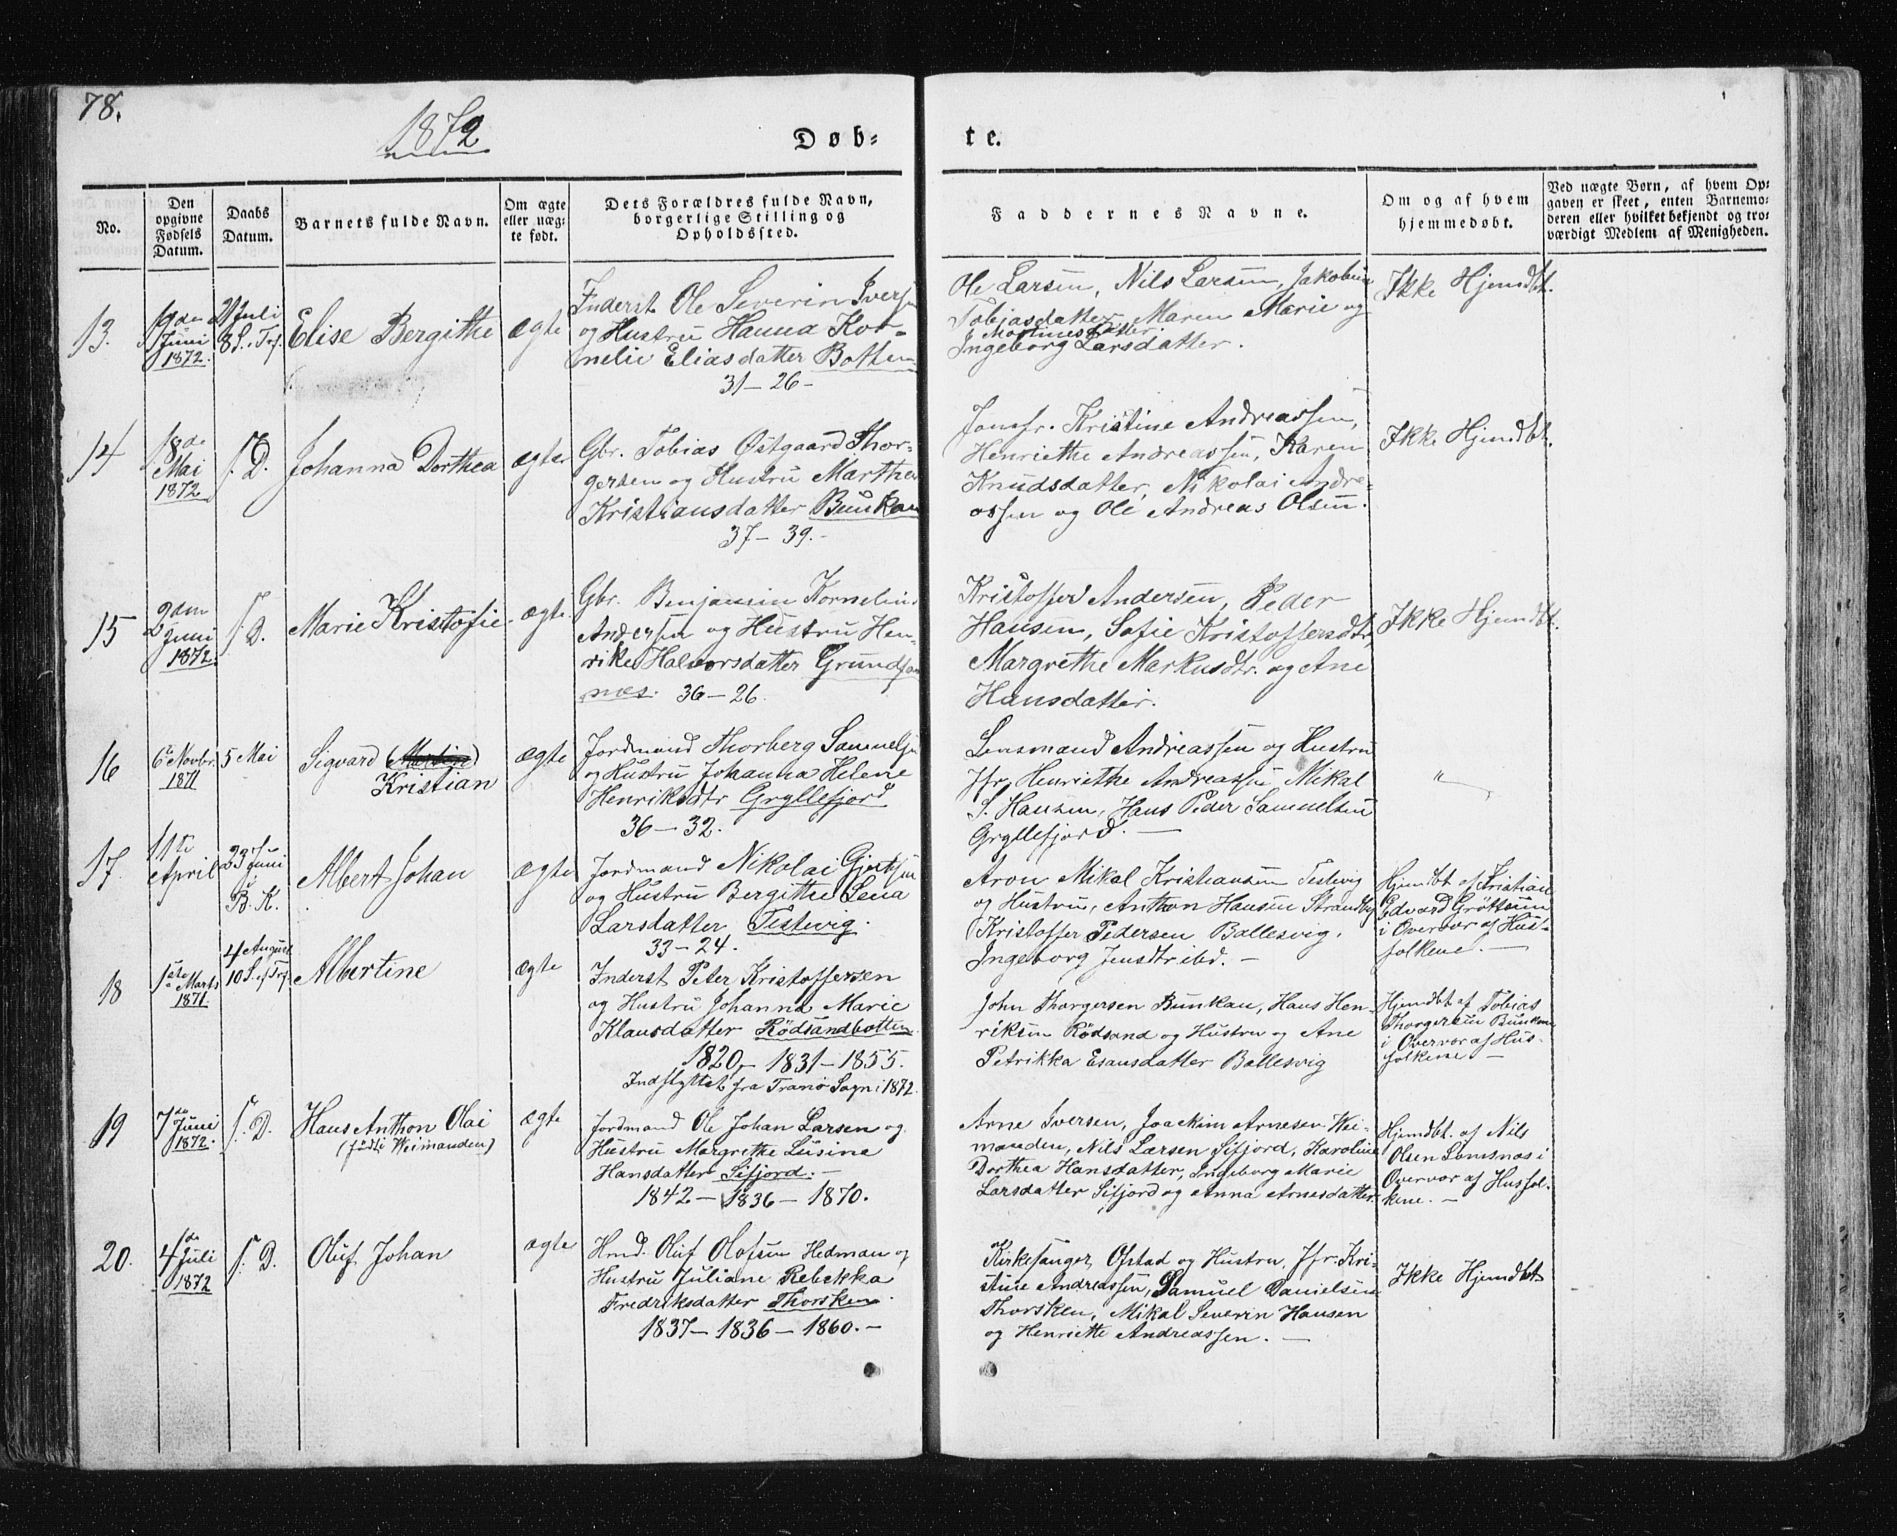 78.
1872
Døb-
te.
No.
Den opgivne Fødsels Datum.
Daabs Datum.
Barnets fulde Navn.
Om ægte eller uægte født.
Dets Forældres fulde Navn, borgerlige Stilling og Opholdssted.
Faddernes Navne.
Om og af hvem hjemmedøbt.
Ved uægte Børn, af hvem Opgaven er skeet, enten Barnemoderen eller hvilket bekjendt og troværdigt Medlem af Menigheden.
13.
Juni
1872.
21 Juli
8 S. e. Tref.
Elise Bergithe
ægte
Inderst Ole Severin Iversen
og Hustru Hanna Kor-
nelie Eliasdatter Botten
31-26-
Ole Larsen, Nils Larsen, Jakobine
Tobiasdatter, Maren Marie
Mortinesdatter og
Ingeborg Larsdatter.
Ikke Hjemdbt.
14
18de
Mai
1872
s. D.
Johanna Dorthea
ægte
Gbr. Tobias Østgaard Thor-
gersen og Hustru Marthe
Kristiansdatter Bunkan
37-39.-
Jomfr. Kristine Andreassen,
Henriethe Andreassen, Karen
Knudsdatter, Nikolai Andre-
assen og Ole Andreas Olsen.
Ikke Hjemdbt.
15
2den
Juni
1872.
s. D.
Marie Kristofie
ægte
Gbr. Benjamin Kornelius
Andersen og Hustru Hen-
rike Halvorsdatter Grundfar
nes. 36-26.
Kristoffer Andersen, Peder
Hansen, Sofie Kristoffersdtr,
Margrethe Markusdtr. og Ane
Hansdatter.
Ikke Hjemdbt.
16
6te Novbr.
1871
5 Mai
Sigvard (Martin)
Kristian
ægte
Jordmand Thorberg Samuelsen
og Hustru Johanna Helene
Henriksdtr Gryllefjord
36-32.
Lensmand Andreassen og Hustru
Jfr. Henriethe Andreassen Mikal
S. Hansen, Hans Peder Samuelsen
Gryllefjord. -
"
17.
11te
April
23 Juni
i
B. K.
Albert Johan
ægte
Jordmand Nikolai Gjertsen
og Hustru Bergitthe Lena
Larsdatter Testevig.
33-24.
Aron Mikal Kristiansen Testevig
og Hustru, Anthon Hansen Strandby
Kristoffer Pedersen Ballesvig,
Ingeborg Jensdtr ibd. -
Hjemdbt af Kristian
Edvard Grøttsen
i Overvær af Hus-
folkene. -
18
1ste Marts
1871.
4 August
10 S. ef. Tref.
Albertine
ægte
Inderst Peter Kristoffersen
og Hustru Johanna Marie
Klausdatter Rödsandbotten
1820,- 1831-1855.
Indflyttet fra Tranø Sogn i 1872.
John Thorgersen Bunkan, Hans Hen-
riksen Rødsand og Hustru og Ane
Petrikka Esausdatter Ballesvig
Hjemdbt. af Tobias
Thorgersen Bunkan
i Overvær af Hus-
folkene -
19
7de
Juni
1872.
s. D.
Hans Anthon Olai
(född i Weimanden)
ægte
Jordmand Ole Johan Larsen og
Hustru Margrethe Luisina
Hansdatter Sifjord. -
1842-1836-1870.
Arne Iversen, Joackim Arnesen Wei-
manden, Nils Larsen Sifjord, Karoline
Dorthea Hansdatter, Ingeborg Marie
Larsdatter Sifjord og Anna Arnesdatter
Hjemdbt. af Nils
Olsen Lemsnæs i
Overvær af Husfol-
kene. -
20.
4de
Juli
1872
s. D.
Oluf Johan
ægte
Hmd. Oluf Olofsen Hedman og
Hustru Juliane Rebekka
Fredriksdatter Thorsken.
1837-1836-1860.-
Kirkesanger Ofstad og Hustru, Jfr. Kri-
stine Andreassen, Samuel Danielsen
Thorsken, Mikal Severin Hansen
og Henriette Andreassen. -
Ikke Hjemdbt